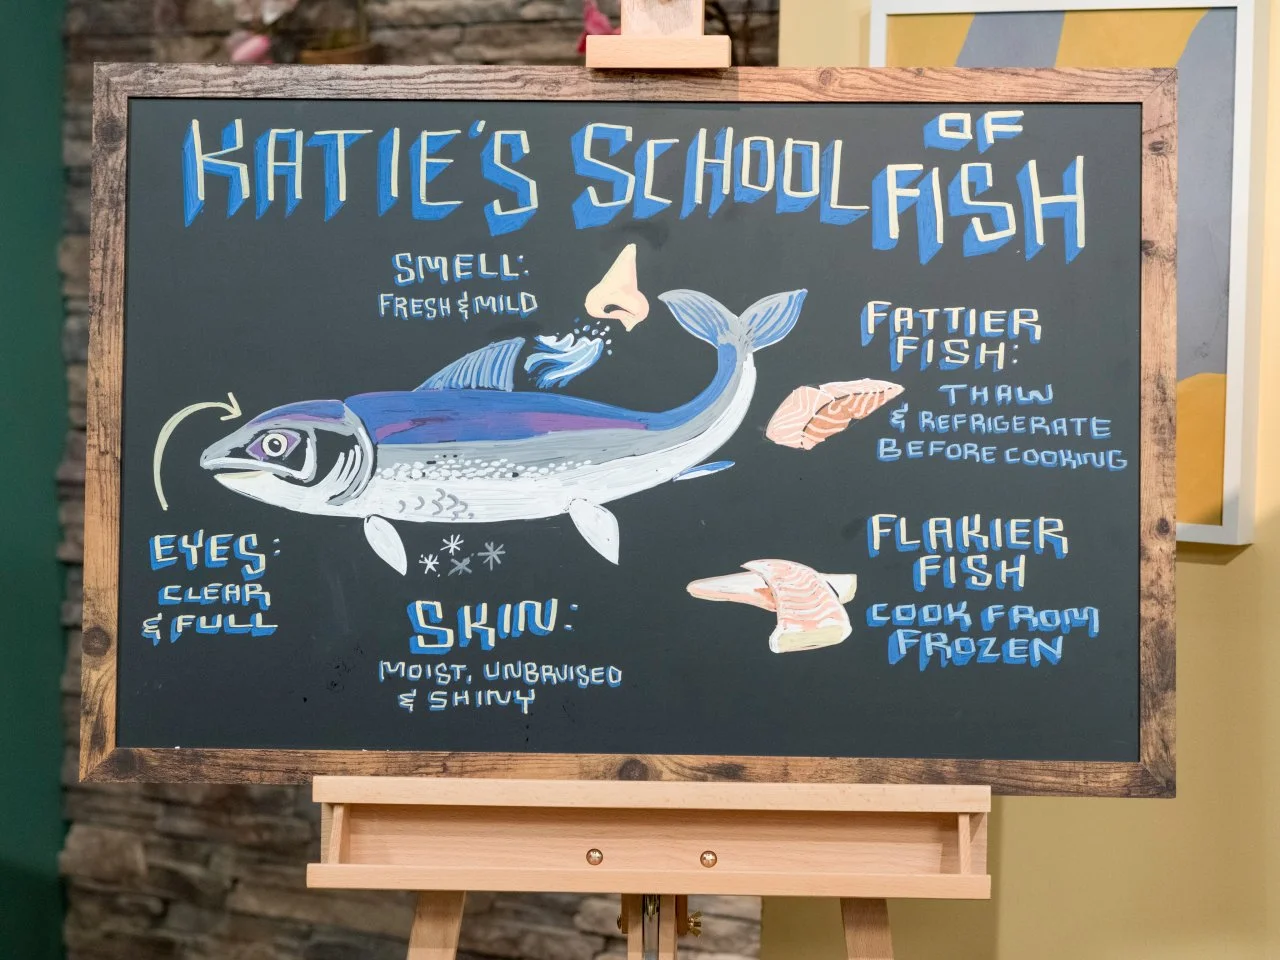 KATIE'S SCHOOL OF FISH
SMELL:
FRESH & MILD
EYES:
CLEAR
& FULL
SKIN:
MOIST, UNBRUISED
& SHINY
FATTIER
FISH:
THAW
& REFRIGERATE
BEFORE COOKING
FLAKIER
FISH
COOK FROM
FROZEN